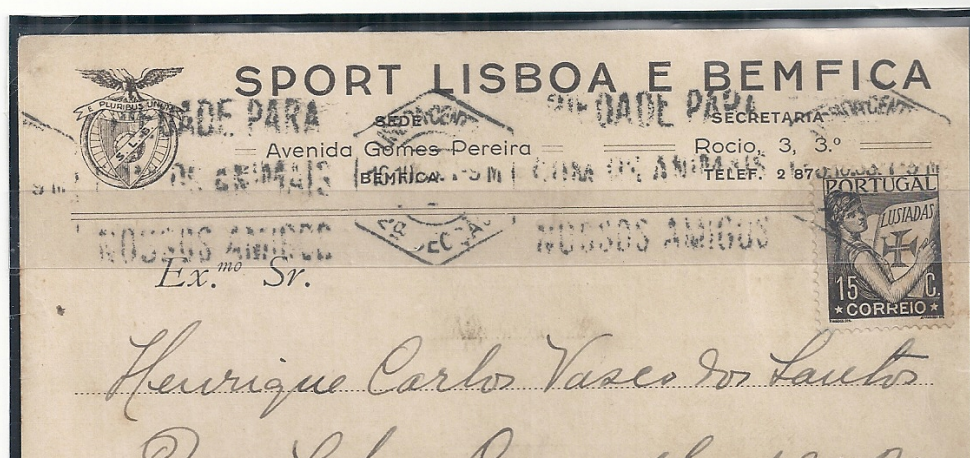 SPORT LISBOA E BEMFICA
E PLURIBUS UNUM
S.L.B.
SEDE
Avenida Gomes Pereira
BEMFICA
SECRETARIA
Rocio, 3, 3.º
TELEF. 2 87
DADE PARA
OS ANIMAIS
NOSSOS AMIGOS
PIEDADE PARA
COM OS ANIMAIS
NOSSOS AMIGOS
2ª SECÇÃO
PORTUGAL
LUSIADAS
15 C.
CORREIO
Ex.mo Sr.
Henrique Carlos Vasco dos Santos